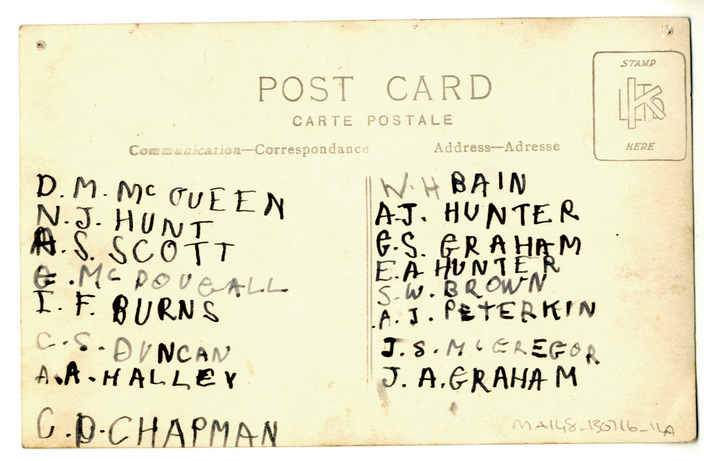 POST CARD
CARTE POSTALE
Communication—Correspondance
Address—Adresse
STAMP
HERE
D. M. Mc QUEEN
N. J. HUNT
A. S. SCOTT
G. Mc DOUGALL
I. F. BURNS
C. S. DUNCAN
A. A. HALLEY
C. D. CHAPMAN
W. H BAIN
A.J. HUNTER
G.S. GRAHAM
E. A HUNTER
S. W. BROWN
A. J. PETERKIN
J. S. McGREGOR
J. A. GRAHAM